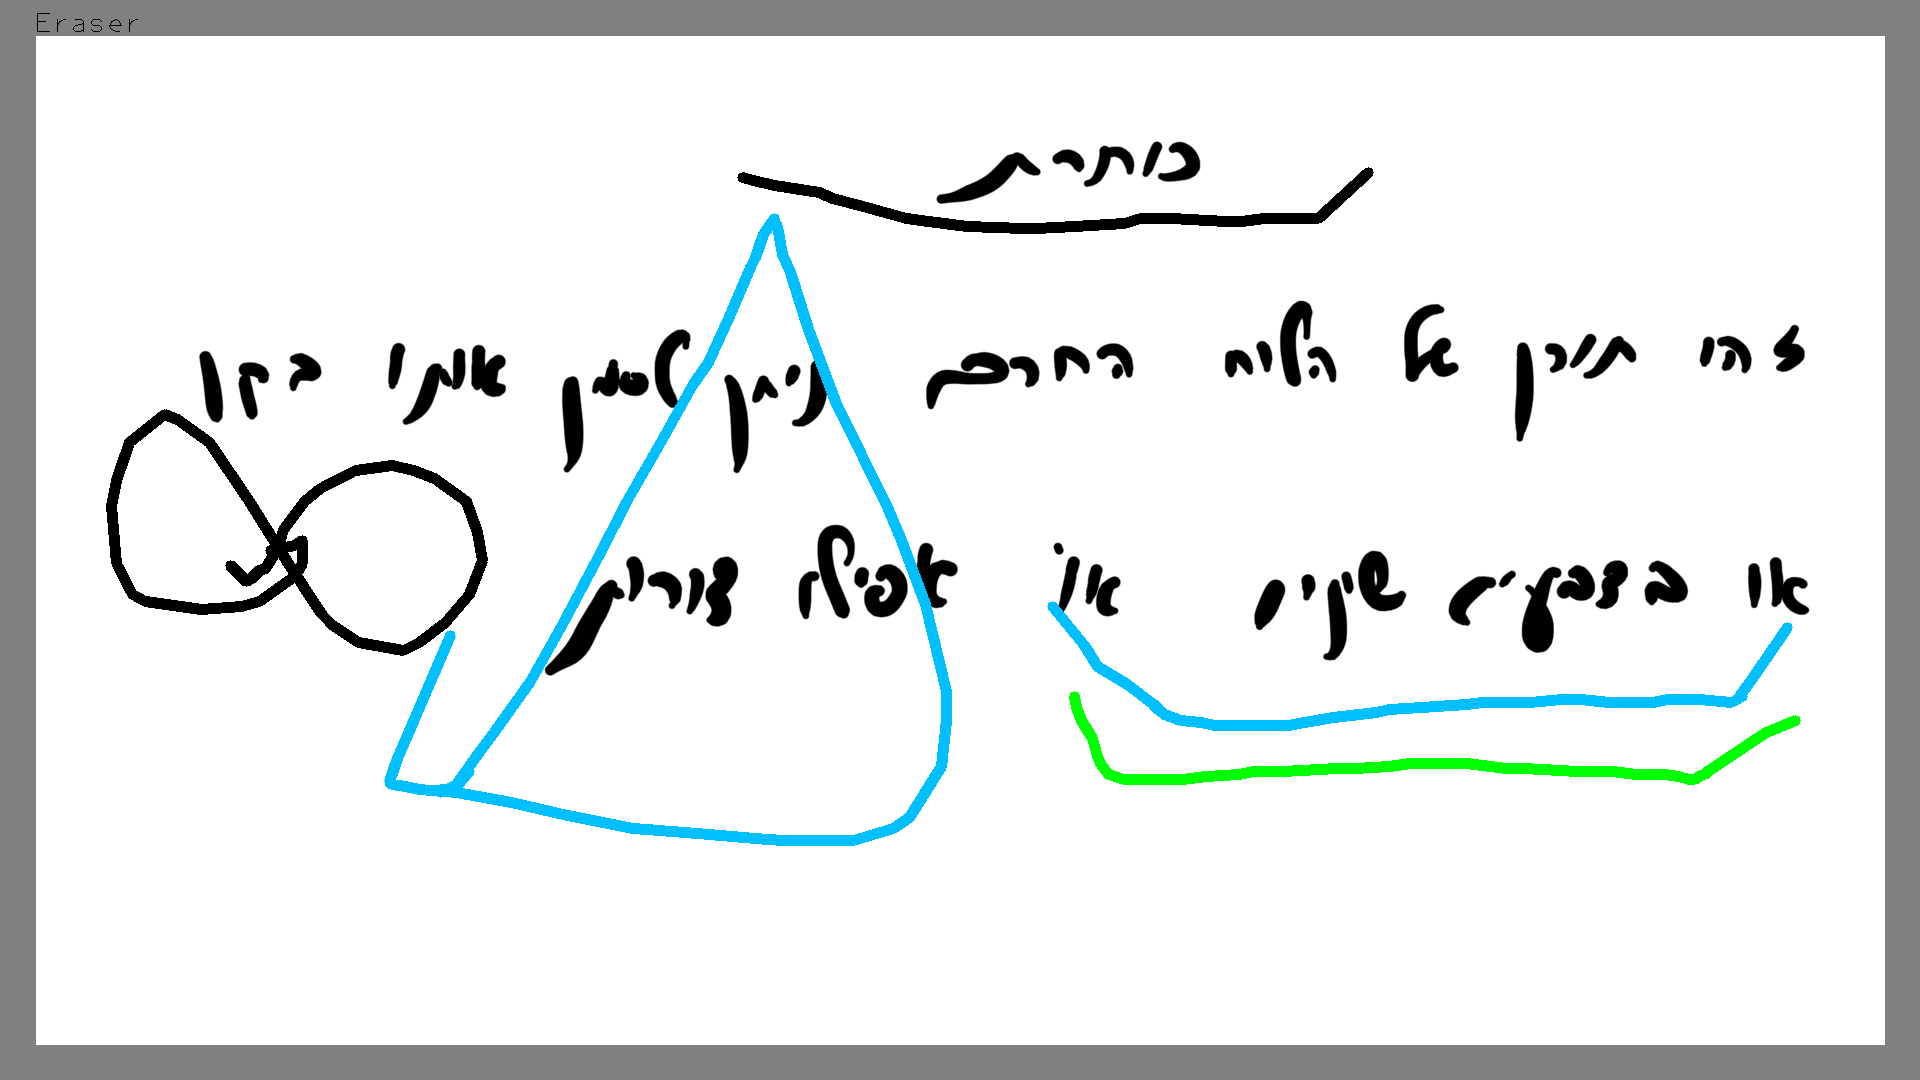 Eraser
כותרת
זהו תוכן על הלוח החכם ניתן לסמן אותו בקו
או בצבעים שונים או אפילו צורות